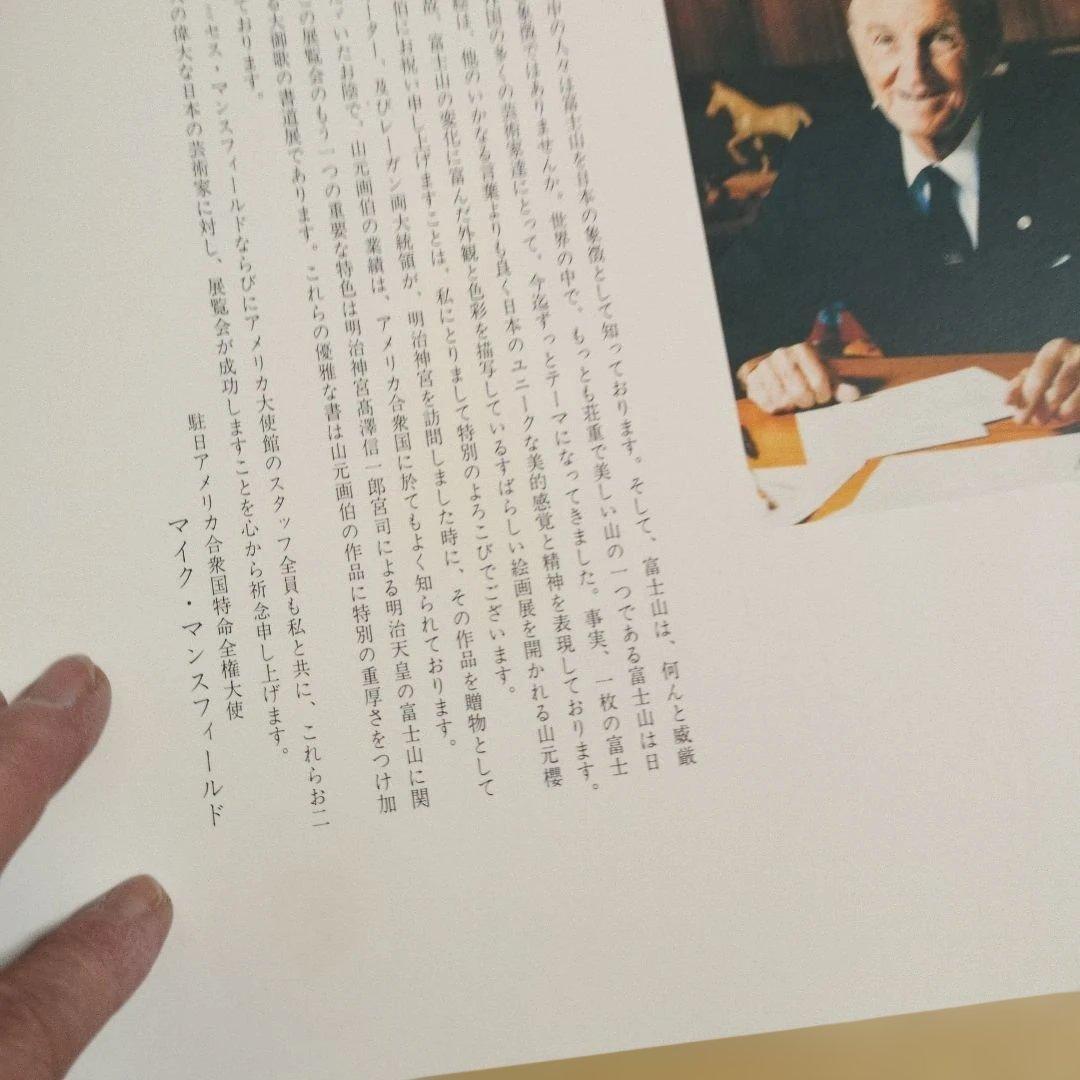 中の人々は富士山を日本の象徴として知っております。そして、富士山は、何んと威厳
象徴ではありませんか。世界の中で、もっとも荘重で美しい山の一つである富士山は日
国の多くの芸術家達にとって、今迄ずっとテーマになってきました。事実、一枚の富士
絵は、他のいかなる言葉よりも良く日本のユニークな美的感覚と精神を表現しております。
故、富士山の変化に富んだ外観と色彩を描写しているすばらしい絵画展を開かれる山元櫻
伯にお祝い申し上げますことは、私にとりまして特別のよろこびでございます。
ーター、及びレーガン両大統領が、明治神宮を訪問しました時に、その作品を贈物として
いたお陰で、山元画伯の業績は、アメリカ合衆国に於てもよく知られております。
の展覧会のもう一つの重要な特色は明治神宮髙澤信一郎宮司による明治天皇の富士山に関
る大御歌の書道展であります。これらの優雅な書は山元画伯の作品に特別の重厚さをつけ加
ております。
ーセス・マンスフィールドならびにアメリカ大使館のスタッフ全員も私と共に、これらお二
の偉大な日本の芸術家に対し、展覧会が成功しますことを心から祈念申し上げます。
駐日アメリカ合衆国特命全権大使
マイク・マンスフィールド